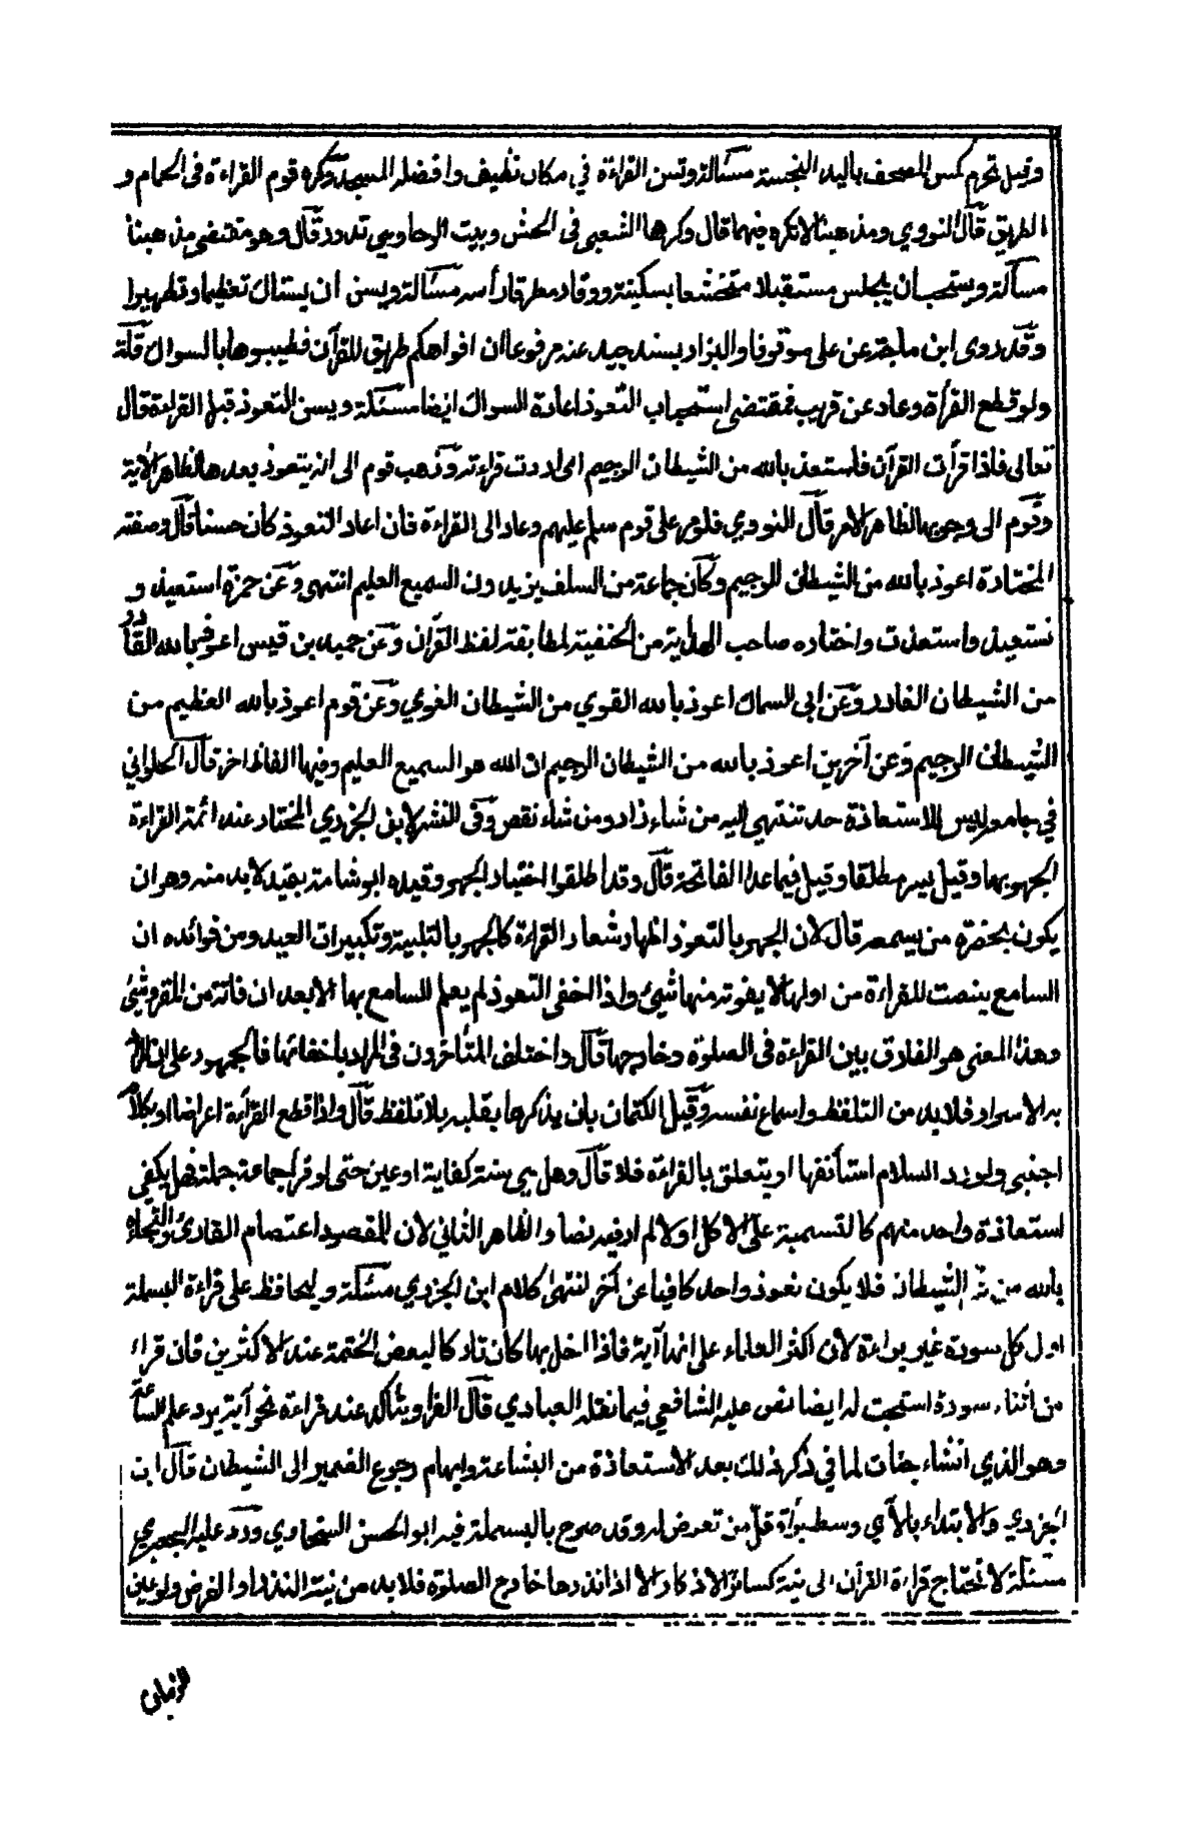 وقيل تحرم كمس المصحف باليد النجسة مسألة وتسن القراءة في مكان نظيف وافضله المسجد وكره قوم القراءة فى الحمام و
الطريق قال النووي ومذهبنا لا تكره فيهما قال وكرهها الشعبى فى الحش وبيت الرحا وهي تدور قال وهو مقتضى مذهبنا
مسألة ويستحب ان يجلس مستقبلا متخشعا بسكينة ووقار مطرقا رأسه مسألة ويسن ان يستاك تعظيما وتطهيرا
وقد روى ابن ماجة عن على موقوفا والبزار بسند جيد عنه مرفوعا ان افواهكم طريق للقرآن فطيبوها بالسواك قلت
ولو قطع القرأة وعاد عن قريب فمقتضى استحباب التعوذ اعادة السواك ايضا مسئلة ويسن التعوذ قبل القراءة قال
تعالى فاذا قرأت القرآن فاستعذ بالله من الشيطان الرجيم اى اردت قراءته وذهب قوم الى انه يتعوذ بعدها لظاهر الآية
وقوم الى وجوبها لظاهر الامر قال النووي فلو مر على قوم سلم عليهم وعاد الى القراءة فان اعاد التعوذ كان حسنا قال وصفته
المختارة اعوذ بالله من الشيطان الرجيم وكان جماعة من السلف يزيدون السميع العليم انتهى وعن حمزة استعيذ و
نستعيذ واستعذت واختاره صاحب الهداية من الحنفية لمطابقة لفظ القرآن وعن حميد بن قيس اعوذ بالله القادر
من الشيطان الغادر وعن ابى السماك اعوذ بالله القوي من الشيطان الغوي وعن قوم اعوذ بالله العظيم من
الشيطان الرجيم وعن آخرين اعوذ بالله من الشيطان الرجيم ان الله هو السميع العليم وفيها الفاظ اخر قال الحلواني
في جامعه ليس للاستعاذة حد تنتهى اليه من شاء زاد ومن شاء نقص وفى النشر لابن الجزري المختار عند ائمة القراءة
الجهر بها وقيل يسر مطلقا وقيل فيما عدا الفاتحة قال وقد اطلقوا اختيار الجهر وقيده ابو شامة بقيد لابد منه وهو ان
يكون بحضرة من يسمعه قال لان الجهر بالتعوذ اظهار شعار القراءة كالجهر بالتلبية وتكبيرات العيد ومن فوائده ان
السامع ينصت للقراءة من اولها لا يفوته منها شئ واذا اخفى التعوذ لم يعلم السامع بها الا بعد ان فاته من المقرو شئ
وهذا المعنى هو الفارق بين القراءة فى الصلوة وخارجها قال واختلف المتأخرون فى المراد باخفائها فالجمهور على ان المراد
به الاسرار فلا بد من التلفظ واسماع نفسه وقيل الكتمان بان يذكرها بقلبه بلا تلفظ قال واذا قطع القرأة اعراضا او بكلام
اجنبي ولو رد السلام استأنفها او يتعلق بالقراءة فلا قال وهل هي سنة كفاية او عين حتى لو قرأ جماعة جملة فهل يكفي
استعاذة واحد منهم كالتسمية على الاكل او لا لم ار فيه نصا والظاهر الثاني لان المقصود اعتصام القارئ والتجاءه
بالله من شر الشيطان فلا يكون تعوذ واحد كافيا عن آخر انتهى كلام ابن الجزري مسئلة وليحافظ على قراءة البسملة
اول كل سورة غير براءة لان اكثر العلماء على انها آية فاذا اخل بها كان تاركا لبعض الختمة عند الاكثرين فان قراء
من اثناء سورة استحبت له ايضا نص عليه الشافعي فيما نقله العبادي قال القراء ويتأكد عند قراءة نحو آية يرد علم الساعة
وهو الذي انشاء جنات لما في ذكر ذلك بعد الاستعاذة من البشاعة وايهام رجوع الضمير الى الشيطان قال ابن
الجزري والابتداء بالآي وسط براءة قل من تعرض له وقد صرح بالبسملة فيه ابو الحسن السخاوي ورد عليه الجعبري
مسئلة لا تحتاج قراءة القرآن الى نية كسائر الاذكار الا اذا نذرها خارج الصلوة فلا بد من نية النذر او الفرض ولو عين
الزمان